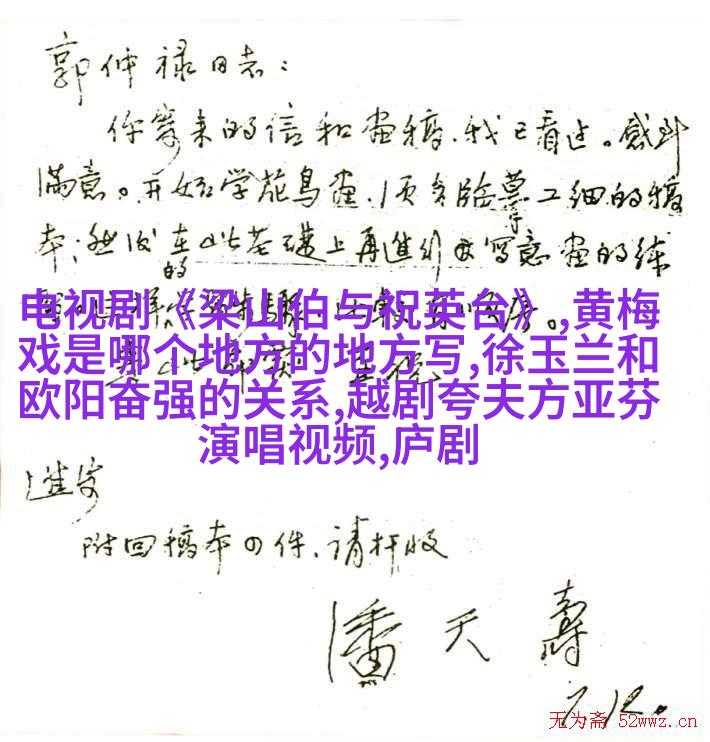 郭仲禄同志：
你寄来的信和画稿，我已看过。感到
满意。开始学花鸟画，须多临摹工细的稿
本；然后在此基础上再进行写意画的练
的
电视剧《梁山伯与祝英台》,黄梅
戏是哪个地方的地方写,徐玉兰和
欧阳奋强的关系,越剧夸夫方亚芬
演唱视频,庐剧
进安
附回稿本四件，请检收
潘天寿
7.12.
无为斋 52wwz.cn